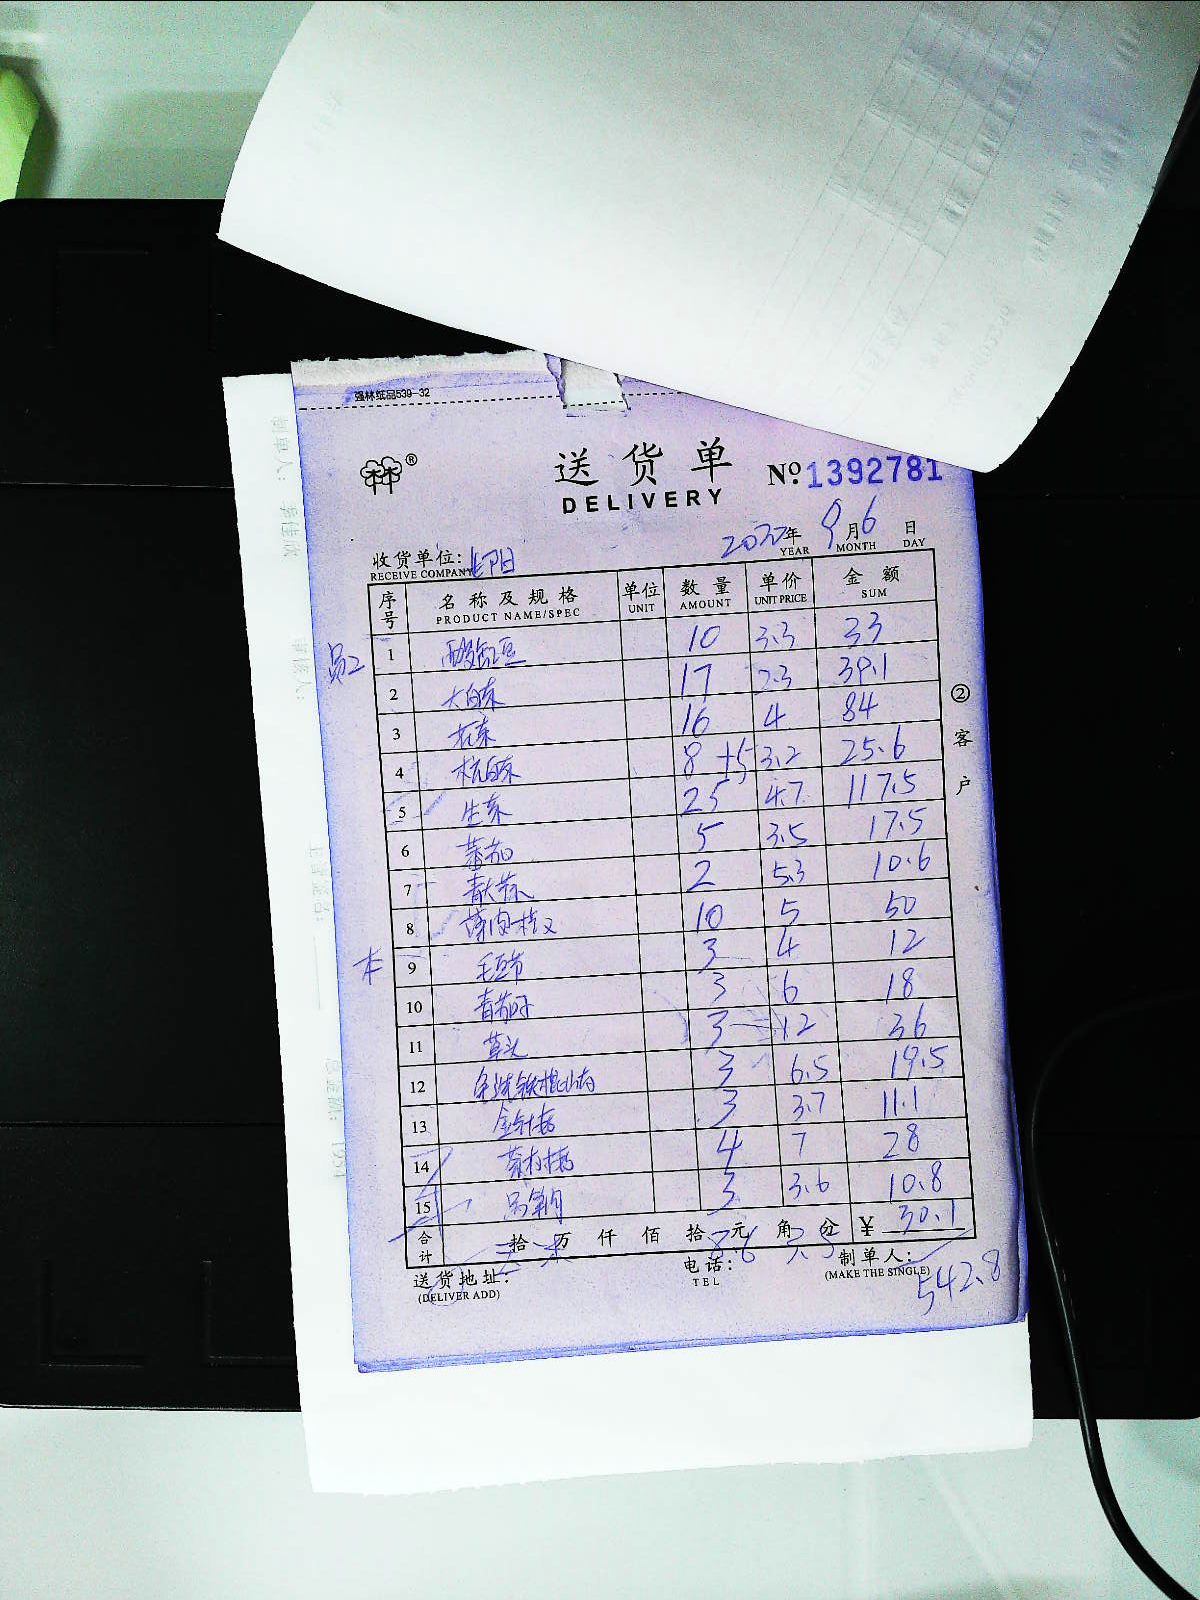 强林纸品539-32
送货单
DELIVERY
№ 1392781
2022年 9月6日
YEAR MONTH DAY
收货单位:
RECEIVE COMPANY
序号 名称及规格 单位 数量 单价 金额
PRODUCT NAME/SPEC UNIT AMOUNT UNIT PRICE SUM
员工
1 酸豇豆 10 3.3 33
2 大白菜 17 2.3 39.1
3 16 4 84
4 杭白菜 8 +5 3.2 25.6
5 生菜 25 4.7 117.5
6 蕃茄 5 3.5 17.5
7 2 5.3 10.6
8 10 5 50
9 毛豆节 3 4 12
10 3 6 18
11 草头 3 12 36
12 3 6.5 19.5
13 金针菇 3 3.7 11.1
14 4 7 28
15 3 3.6 10.8
合计 拾 万 仟 佰 拾 元 角 分 ¥ 30.1
8.6 3.5
送货地址:
(DELIVER ADD)
电话:
TEL
制单人:
(MAKE THE SINGLE)
542.8
②客户